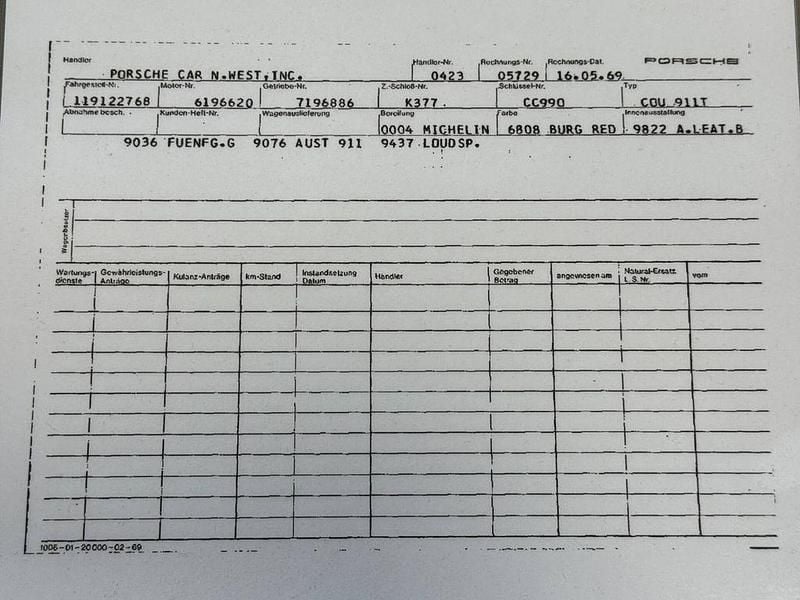 Händler Händler-Nr. Rechnungs-Nr. Rechnungs-Dat. PORSCHE
PORSCHE CAR N.WEST,INC. 0423 05729 16.05.69
Fahrgestell-Nr. Motor-Nr. Getriebe-Nr. Z.-Schloß-Nr. Schlüssel-Nr. Typ
119122768 6196620 7196886 K377. CC990 COU 911T
Abnahme besch. Kunden-Heft-Nr. Wagenauslieferung Bereifung Farbe Innenausstattung
0004 MICHELIN 6808 BURG RED 9822 A.LEAT.B
9036 FUENFG.G 9076 AUST 911 9437 LOUDSP.
Wagenbesitzer
Wartungs- Gewährleistungs- Kulanz-Anträge km-Stand Instandsetzung Händler Gegebener angewiesen am Natural-Ersatz vom
dienste Anträge Datum Betrag L.S.Nr.
1006-01-20000-02-69